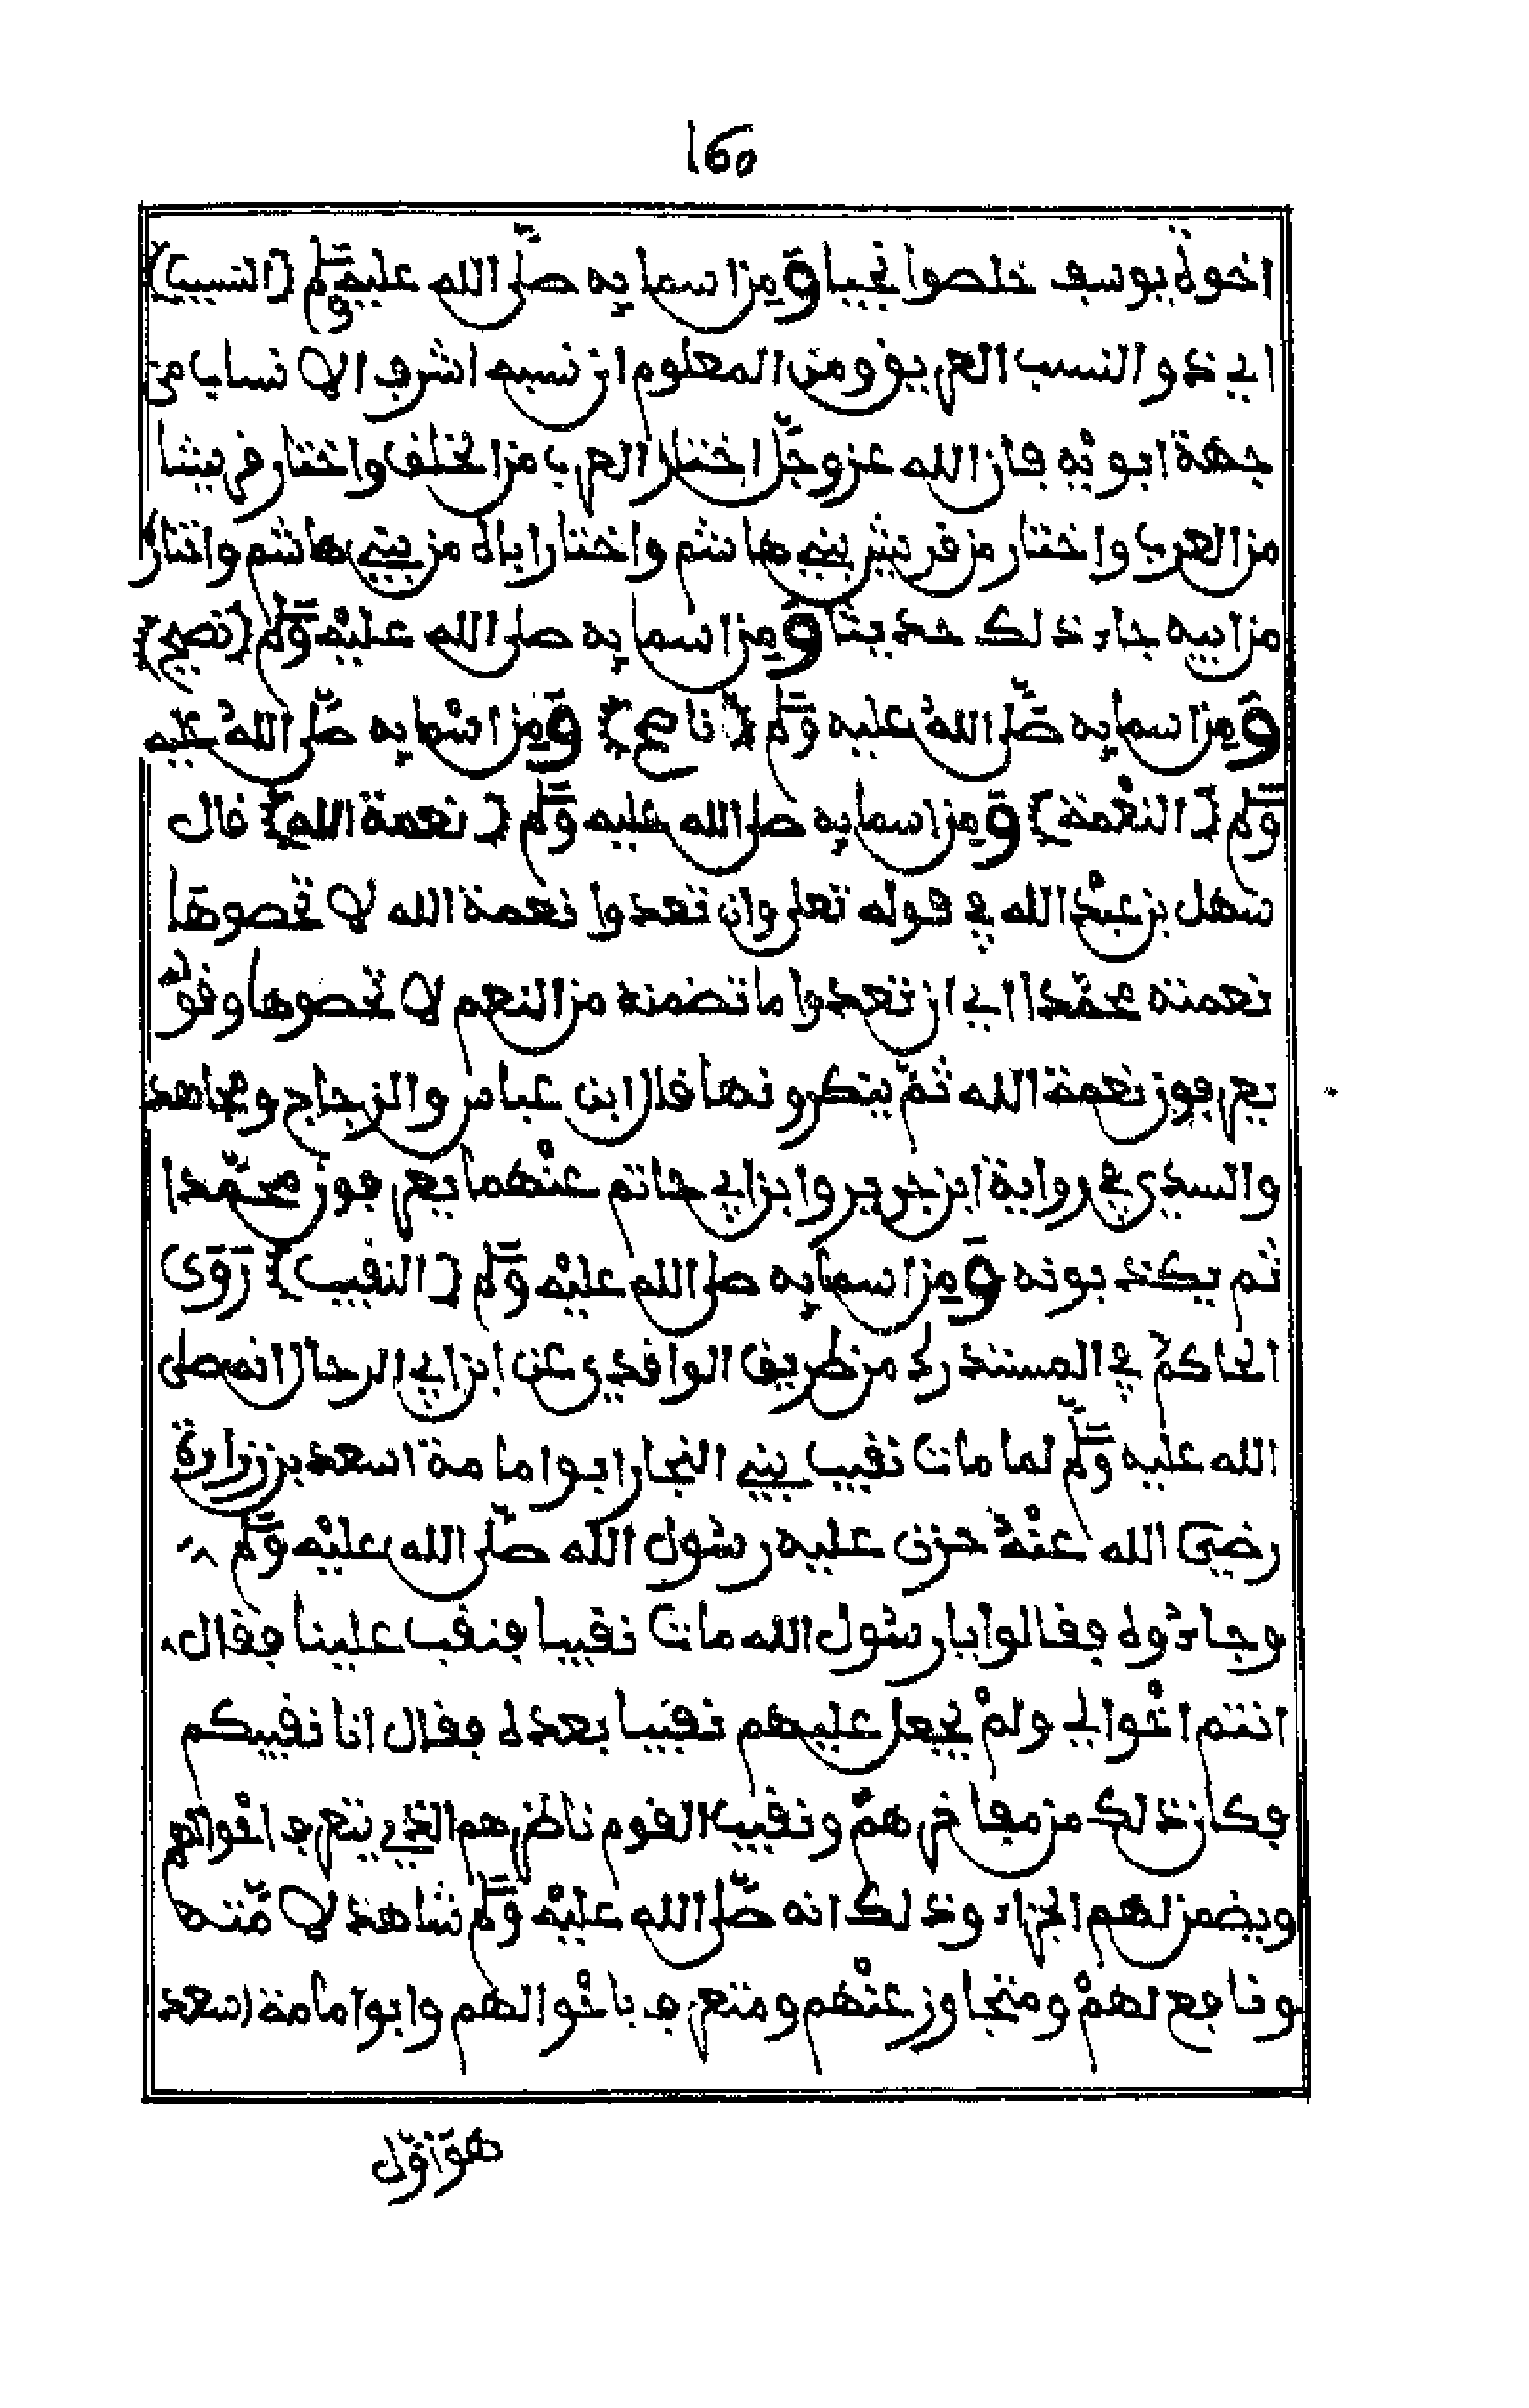 160
اخوة يوسف خلصوا نجيا ومن اسمايه صلى الله عليه وسلم (النسيب)
اي ذو النسب العريق ومن المعلوم ان نسبه اشرف الانساب من
جهة ابويه فان الله عز وجل اختار العرب من الخلق واختار قريشا
من العرب واختار من قريش بني هاشم واختار اباه من بني هاشم واختاره
من ابيه جاء ذلك حديثا ومن اسمايه صلى الله عليه وسلم (نصيح)
ومن اسمايه صلى الله عليه وسلم (ناصح) ومن اسمايه صلى الله عليه
وسلم (النعمة) ومن اسمايه صلى الله عليه وسلم (نعمة الله) قال
سهل بن عبد الله في قوله تعلى وان تعدوا نعمة الله لا تحصوها
نعمته محمدا اي ان تعدوا ما تضمنه من النعم لا تحصوها وقوله
يعرفون نعمة الله ثم ينكرونها قال ابن عباس والزجاج ومجاهد
والسدي في رواية ابن جرير وابن ابي حاتم عنهما يعرفون محمدا
ثم يكذبونه ومن اسمايه صلى الله عليه وسلم (النقيب) روى
الحاكم في المستدرك من طريق الواقدي عن ابن ابي الرجال انه صلى
الله عليه وسلم لما مات نقيب بني النجار ابو امامة اسعد بن زرارة
رضي الله عنه حزن عليه رسول الله صلى الله عليه وسلم
وجاءوه فقالوا يا رسول الله مات نقيبنا فنقب علينا فقال
انتم اخوالي ولم يجعل عليهم نقيبا بعده فقال انا نقيبكم
فكان ذلك من مفاخرهم ونقيب القوم ناظرهم الذي يتعرف احوالهم
ويضمن لهم الجزاء وذلك انه صلى الله عليه وسلم شاهد لامته
وشافع لهم ومتجاوز عنهم ومتعرف باحوالهم وابو امامة اسعد
هو اول